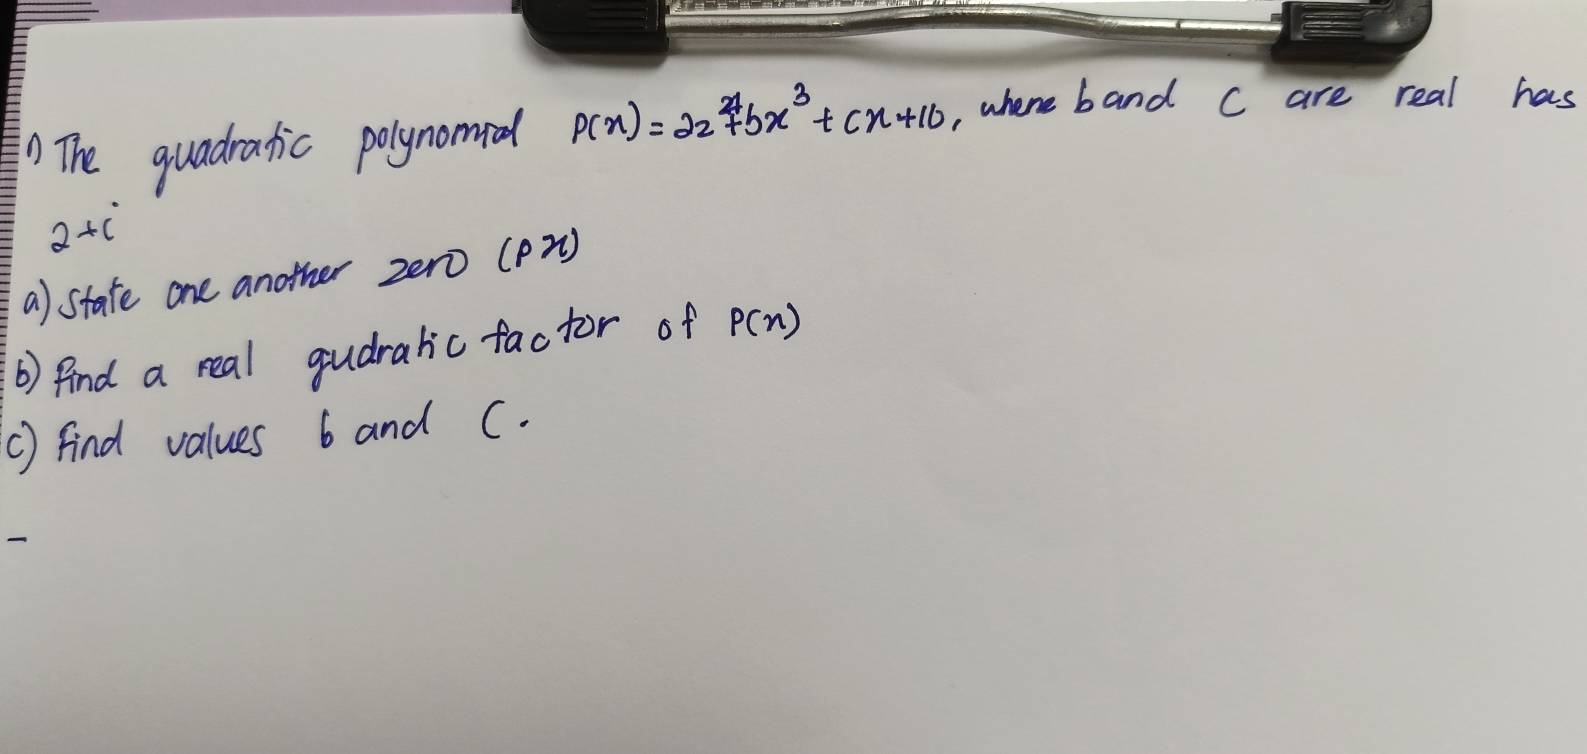 1) The quadratic polynomial P(x) = 2z⁴+bx³ + cx+16, where b and c are real has
2+i
a) state one another zero (Px)
b) find a real qudratic factor of P(x)
c) find values b and c.
-